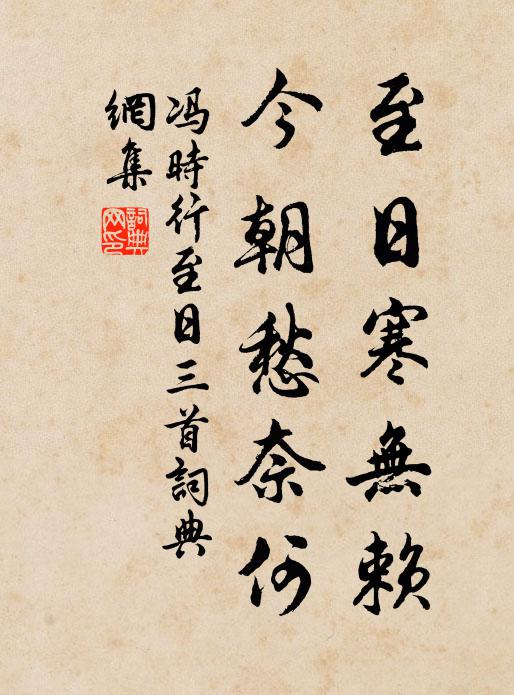 至日寒無赖
今朝愁奈何
冯時行至日三首詞典
網集
詞典网印